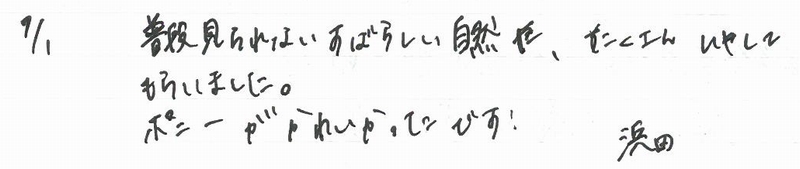 9/1 普段見られないすばらしい自然や、たくさん いやして
もらいました。
ポニーがかわいかったです!
浜田